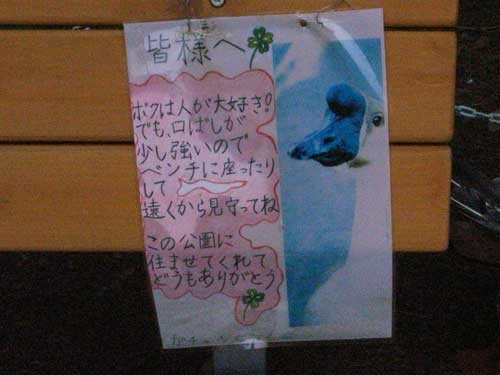 皆様へ
ボクは人が大好き!
でも、口ばしが
少し強いので
ベンチに座ったり
して
遠くから見守ってね
この公園に
住ませてくれて
どうもありがとう